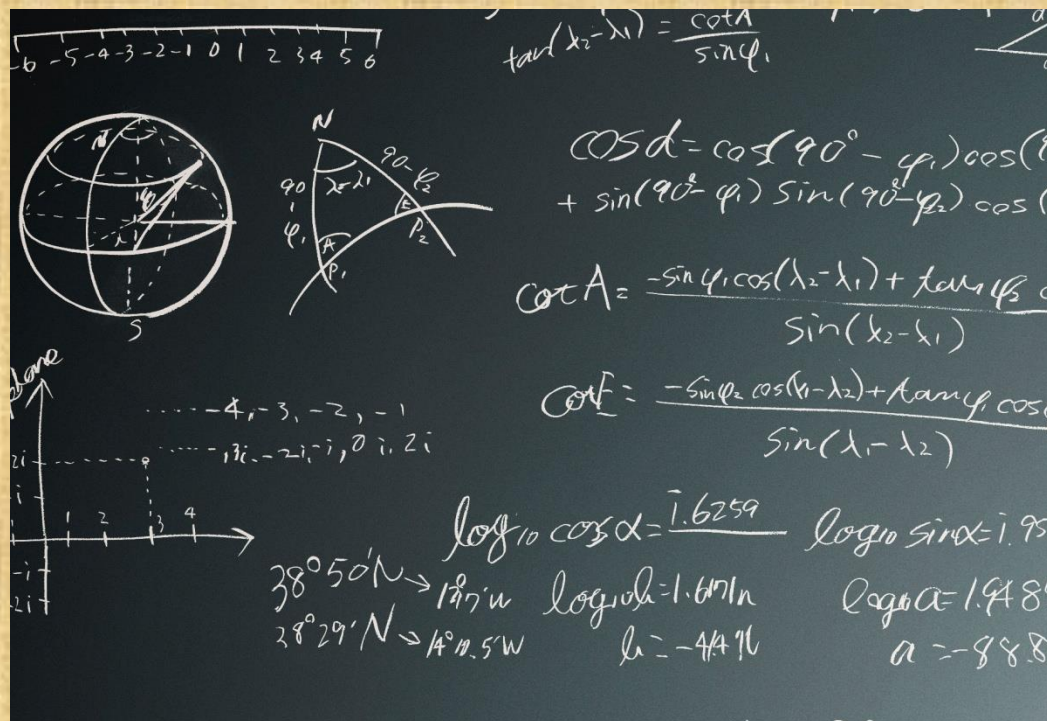 -6 -5 -4 -3 -2 -1 0 1 2 3 4 5 6
tan(λ₂-λ₁) = cotA / sinφ₁
N
S
N
90-φ₁
λ₂-λ₁
90-φ₂
A
E
P₁
P₂
cosd = cos(90° - φ₁) cos(
+ sin(90°-φ₁) sin(90°-φ₂) cos(
cotA = -sinφ₁cos(λ₂-λ₁) + tanφ₂ / sin(λ₂-λ₁)
cotE = -sinφ₂ cos(λ₁-λ₂) + tanφ₁ cos / sin(λ₁-λ₂)
-4, -3, -2, -1
-3i, -2i, -i, 0 i, 2i
2i
i
1 2 3 4
-i
-2i
log₁₀ cosα = 1.6259
log₁₀ sinα = 1.95
38°50'N →
28°29'N → 14° W
log₁₀a = 1.948
a = -88.8